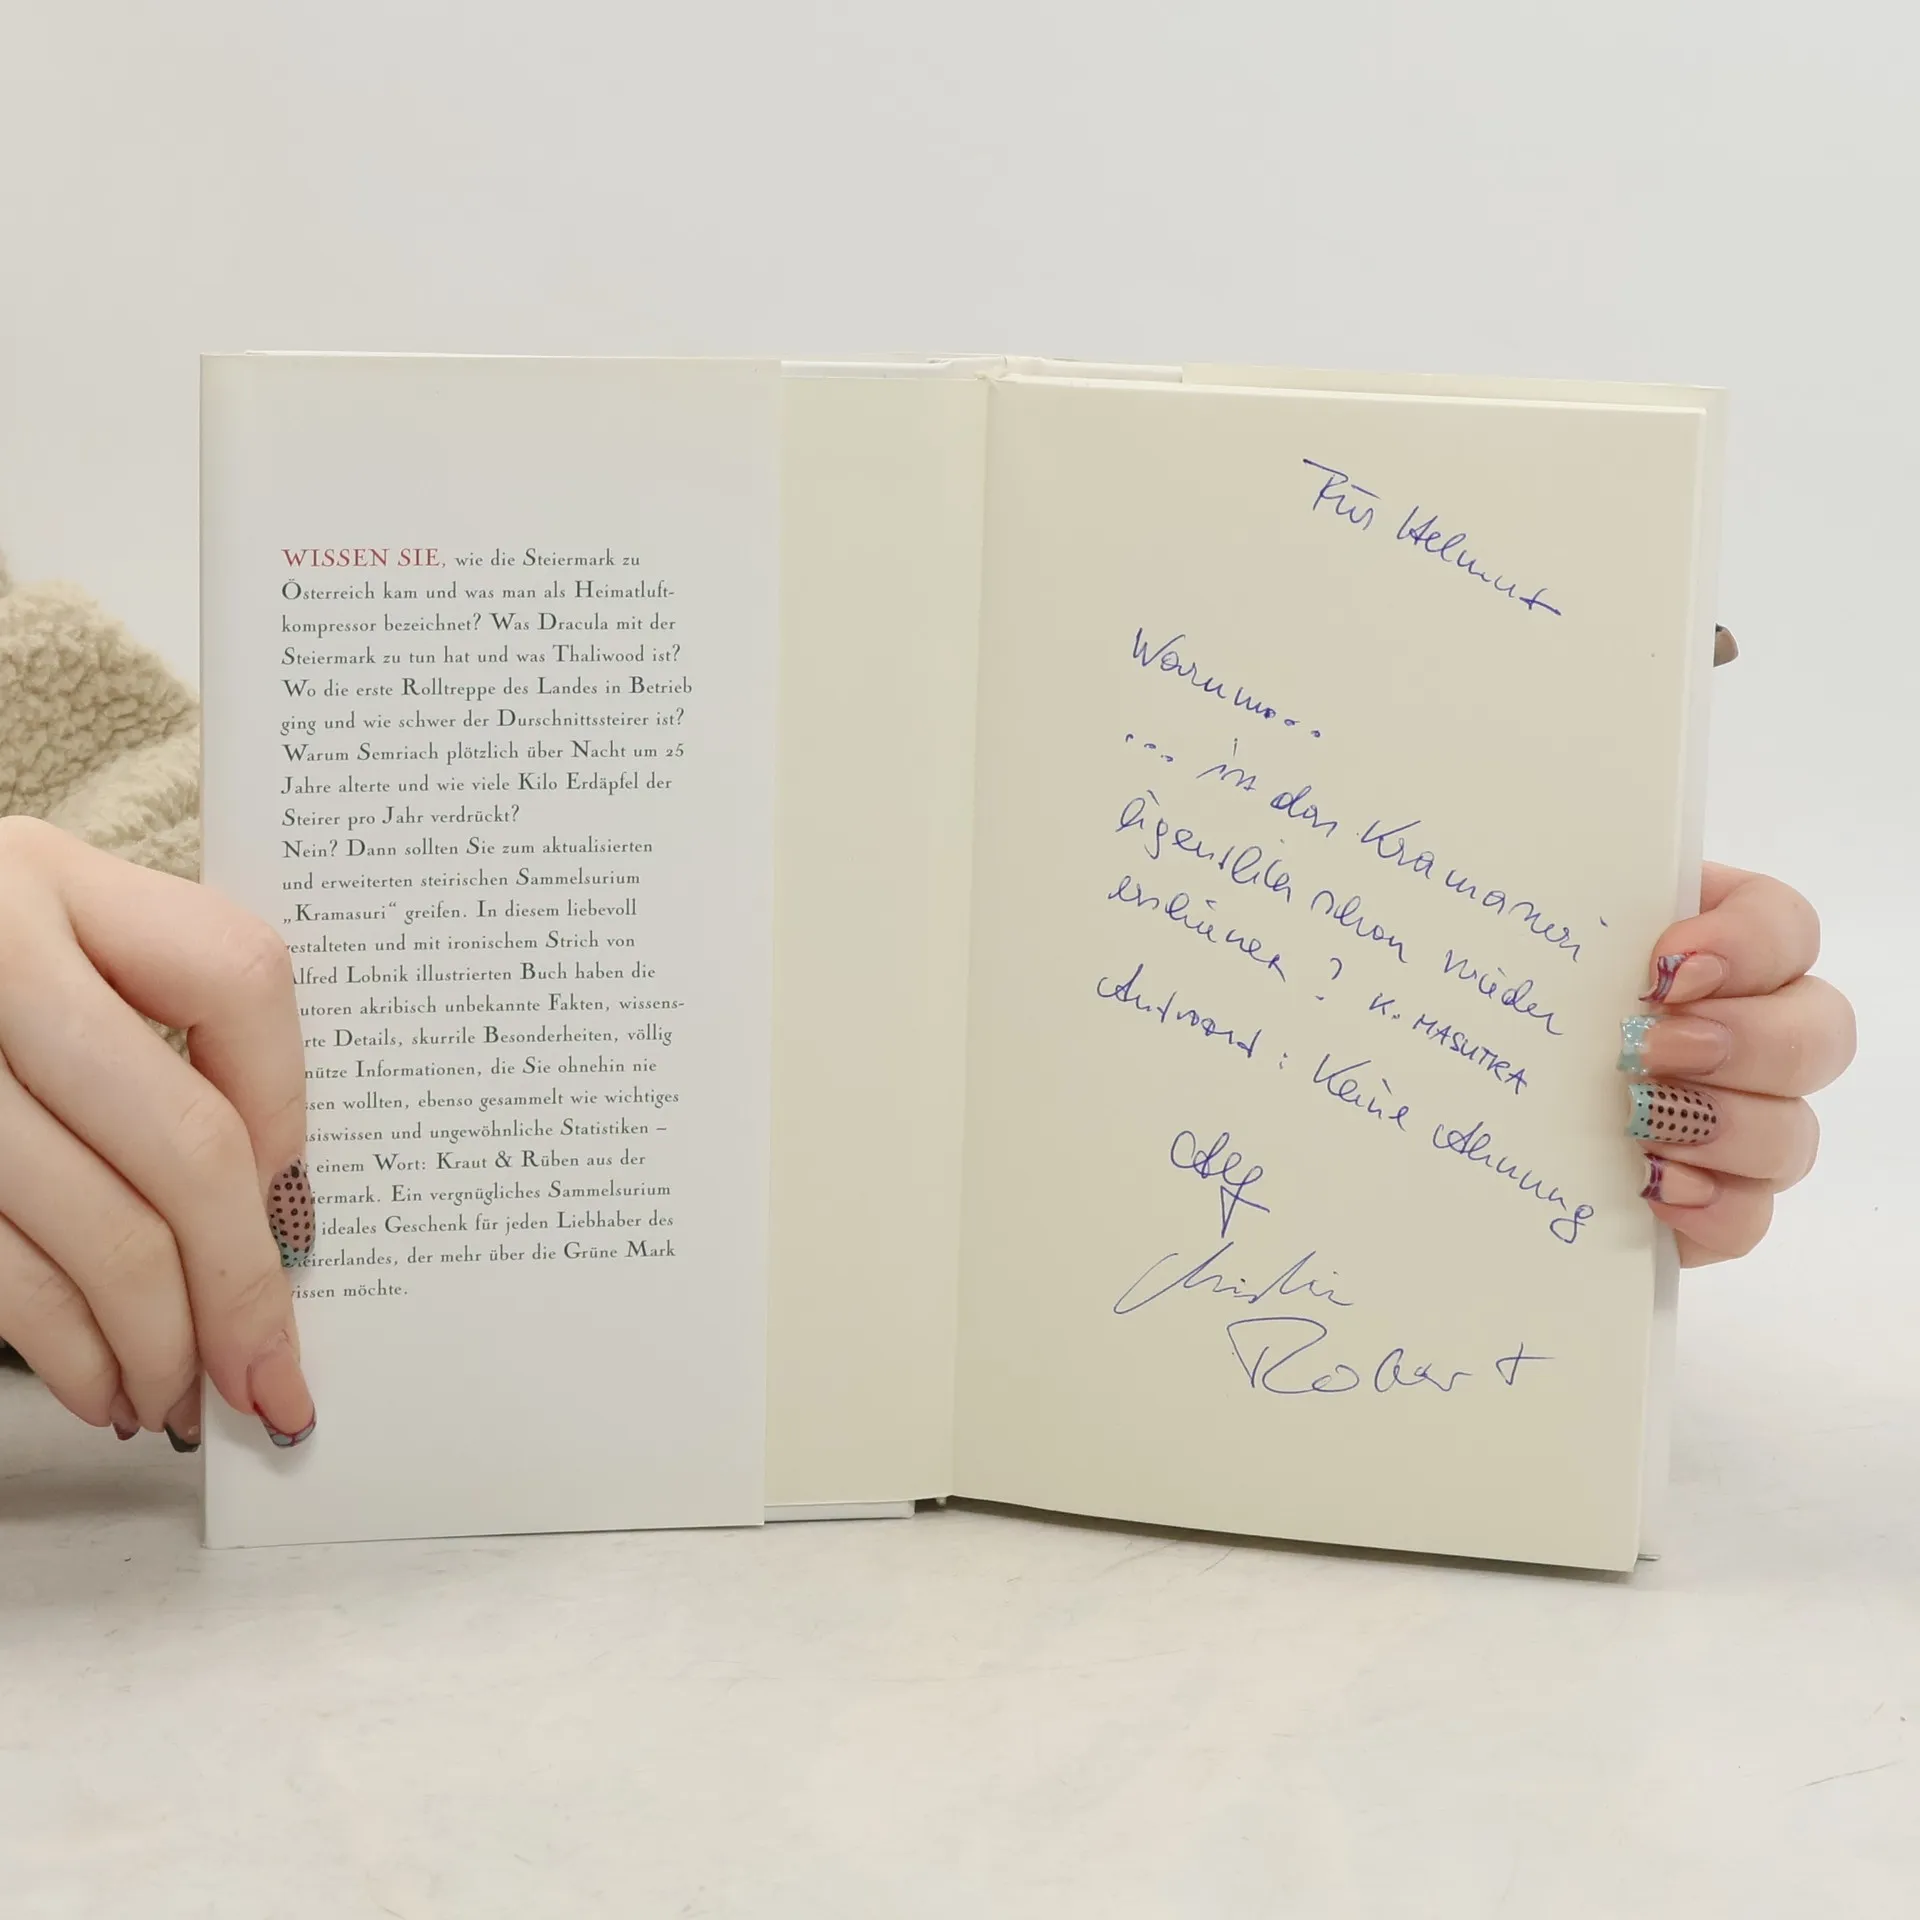 WISSEN SIE, wie die Steiermark zu
Österreich kam und was man als Heimatluft-
kompressor bezeichnet? Was Dracula mit der
Steiermark zu tun hat und was Thaliwood ist?
Wo die erste Rolltreppe des Landes in Betrieb
ging und wie schwer der Durschnittssteirer ist?
Warum Semriach plötzlich über Nacht um 25
Jahre alterte und wie viele Kilo Erdäpfel der
Steirer pro Jahr verdrückt?
Nein? Dann sollten Sie zum aktualisierten
und erweiterten steirischen Sammelsurium
„Kramasuri“ greifen. In diesem liebevoll
gestalteten und mit ironischem Strich von
Alfred Lobnik illustrierten Buch haben die
utoren akribisch unbekannte Fakten, wissens-
rte Details, skurrile Besonderheiten, völlig
nütze Informationen, die Sie ohnehin nie
ssen wollten, ebenso gesammelt wie wichtiges
siswissen und ungewöhnliche Statistiken –
einem Wort: Kraut & Rüben aus der
iermark. Ein vergnügliches Sammelsurium
ideales Geschenk für jeden Liebhaber des
eirerlandes, der mehr über die Grüne Mark
issen möchte.
Für Helmut
Warum...
... ist das Kramasuri
eigentlich schon wieder
erschienen? K. MASUTRA
Antwort: Keine Ahnung
Alf
Christian
Robert